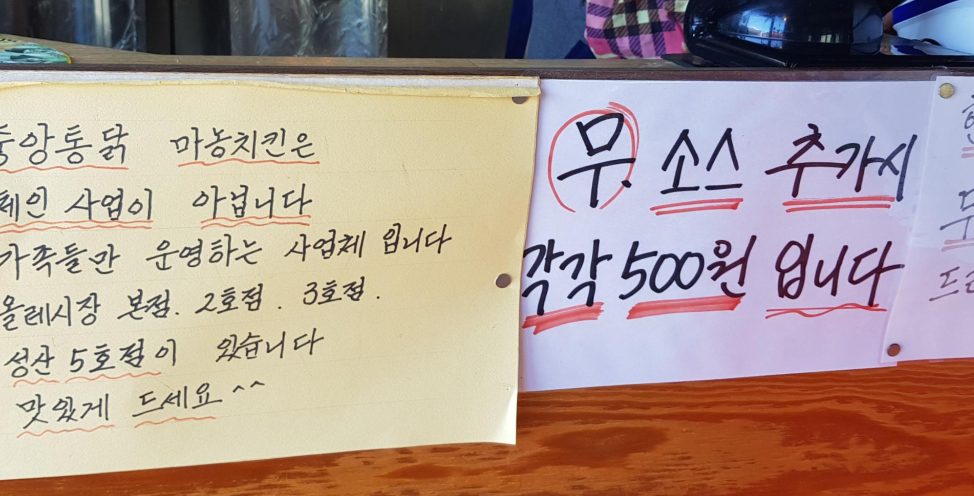 중앙통닭 마농치킨은
체인 사업이 아닙니다
가족들만 운영하는 사업체 입니다
올레시장 본점. 2호점. 3호점.
성산 5호점이 있습니다
맛있게 드세요^^
무. 소스 추가시
각각 500원 입니다